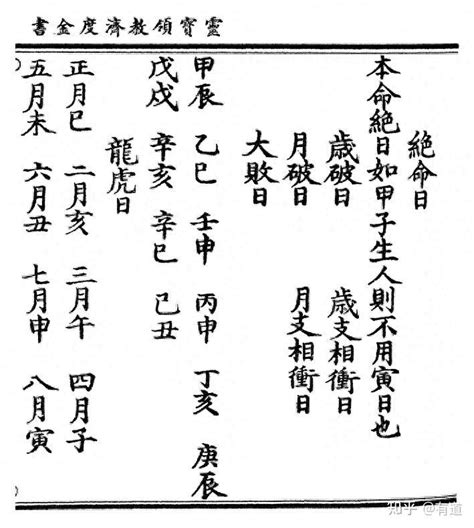 靈寶領教濟度金書
絶命日
本命絶日如甲子生人則不用寅日也
歲破日　歲支相衝日
月破日　月支相衝日
大敗日
甲辰　乙巳　壬申　丙申　丁亥　庚辰
戊戌　辛亥　辛巳　己丑
龍虎日
正月巳　二月亥　三月午　四月子
五月未　六月丑　七月申　八月寅
知乎 @有道